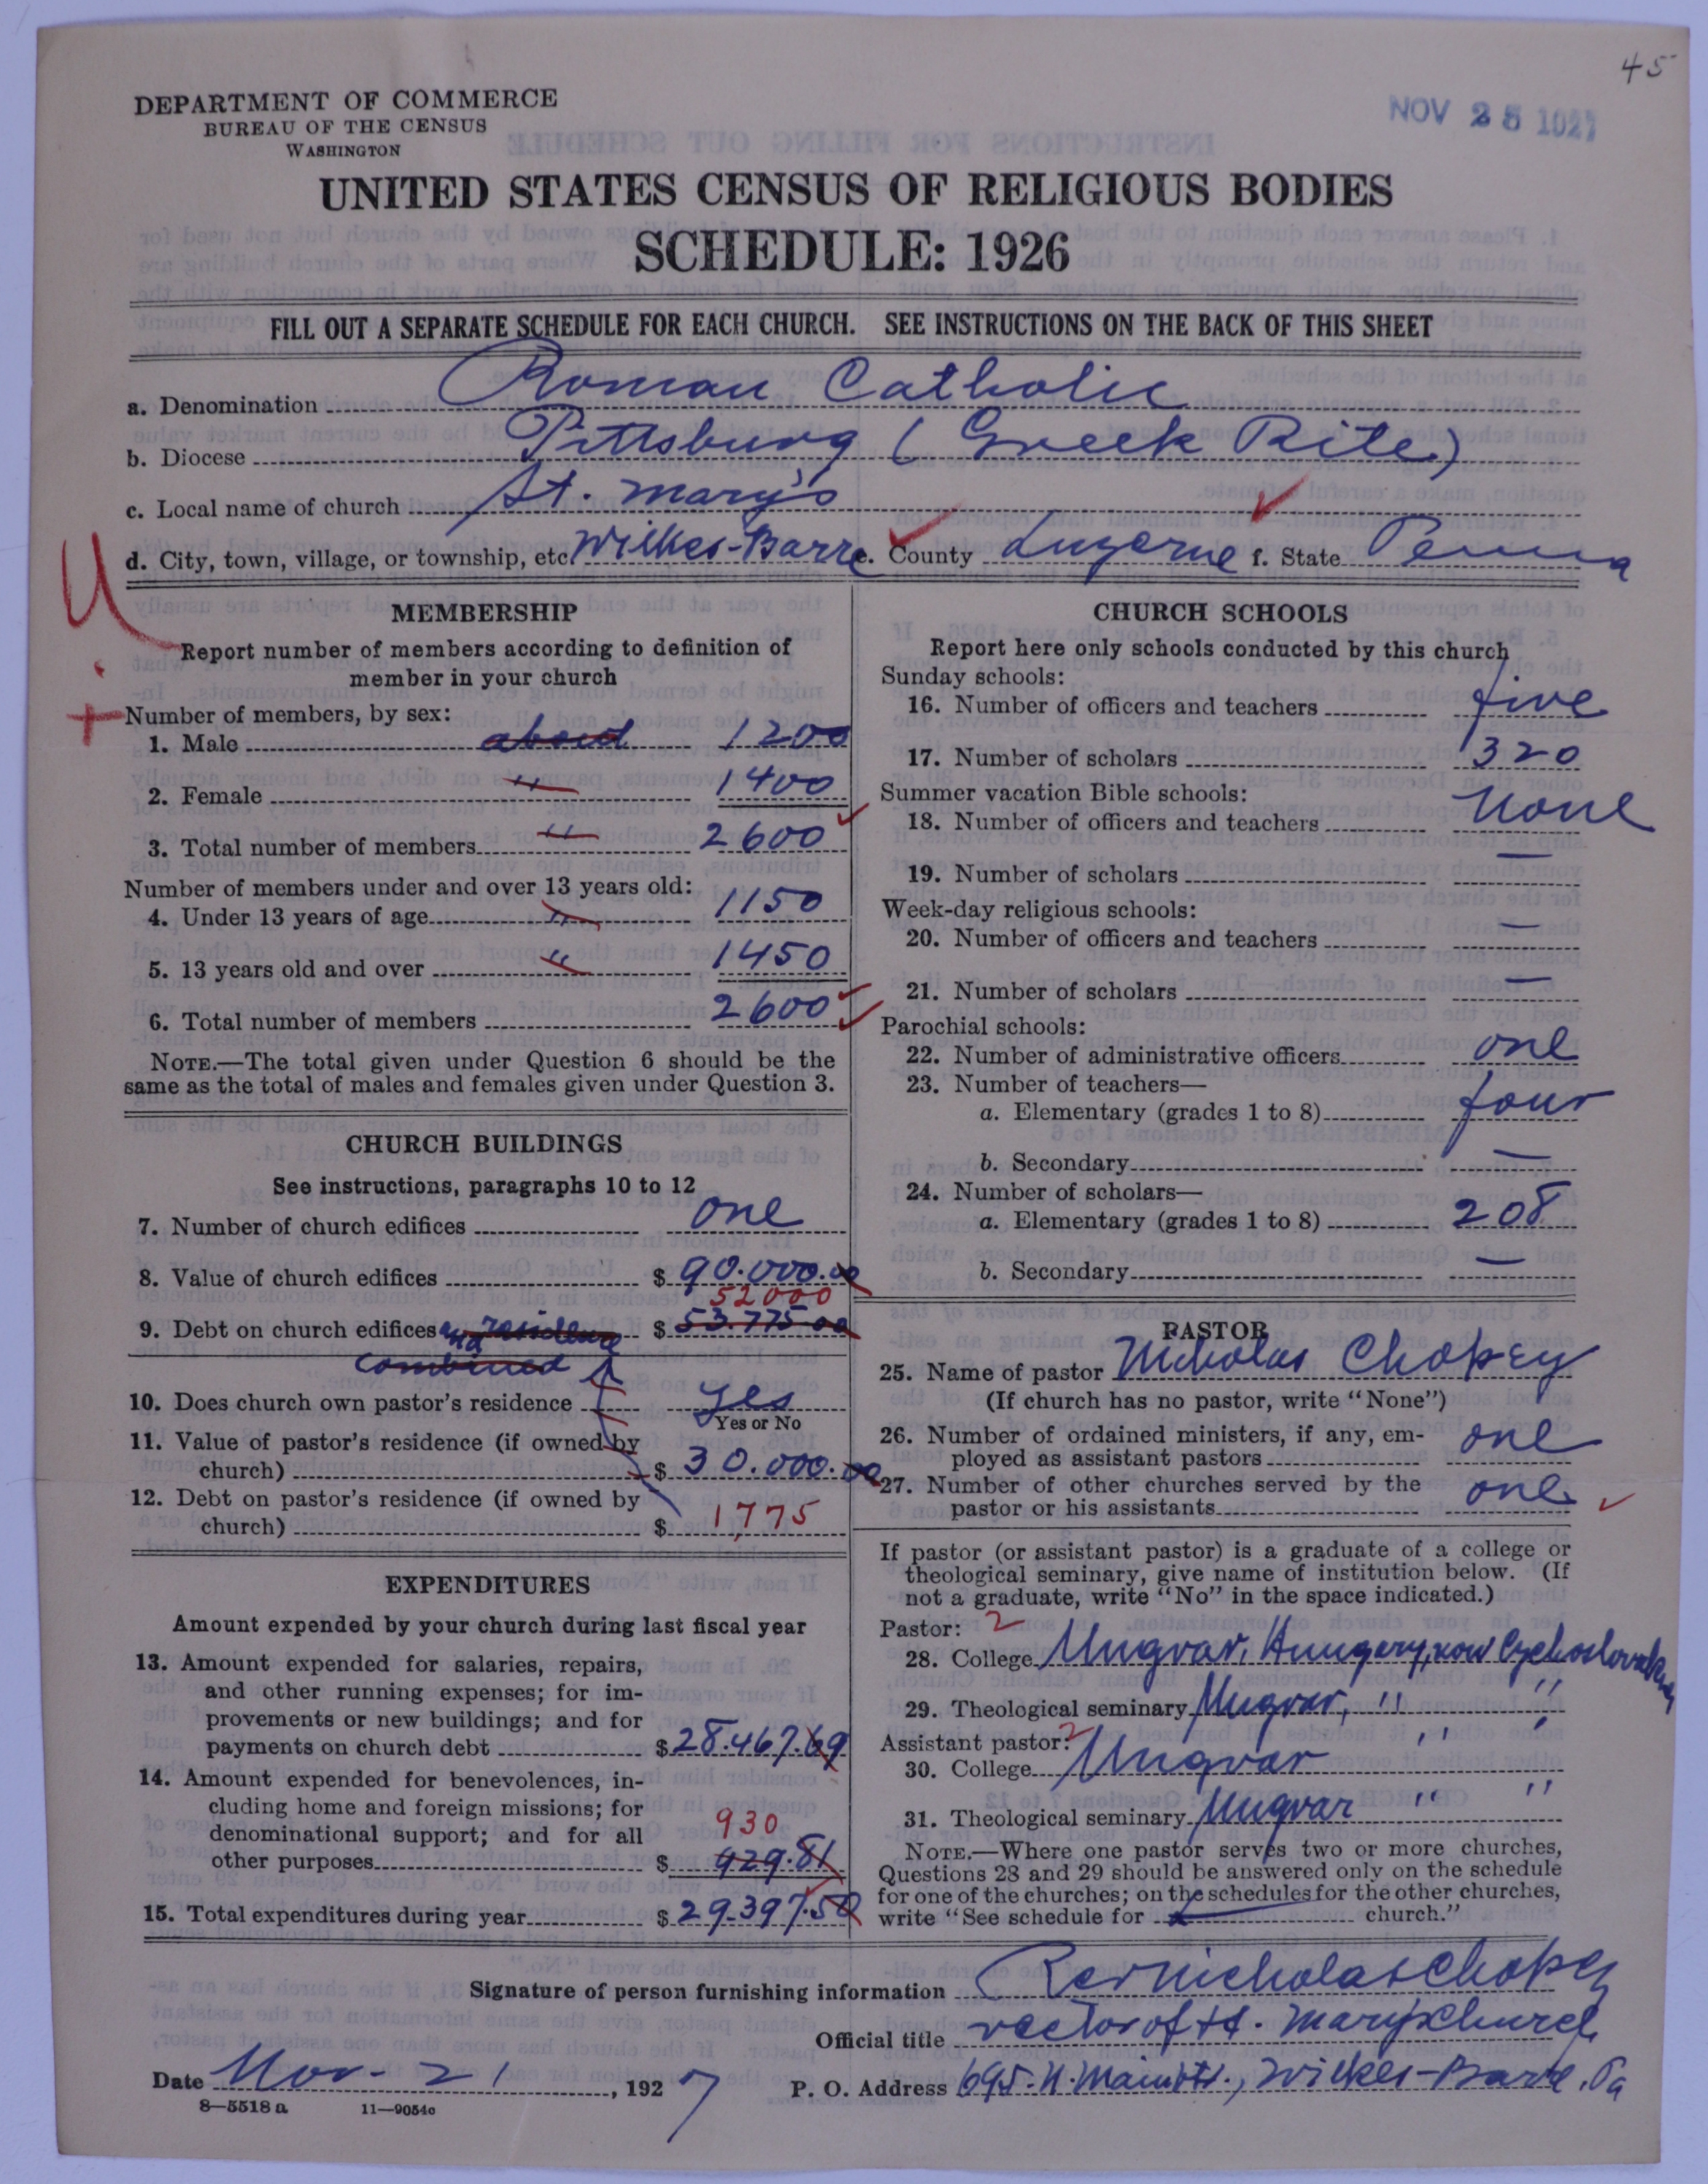 45
DEPARTMENT OF COMMERCE
BUREAU OF THE CENSUS
WASHINGTON
NOV 25 1927
UNITED STATES CENSUS OF RELIGIOUS BODIES
SCHEDULE: 1926
FILL OUT A SEPARATE SCHEDULE FOR EACH CHURCH. SEE INSTRUCTIONS ON THE BACK OF THIS SHEET
a. Denomination Roman Catholic
b. Diocese Pittsburg (Greek Rite)
c. Local name of church St. Mary's
d. City, town, village, or township, etc. Wilkes-Barre e. County Luzerne f. State Penna
MEMBERSHIP
Report number of members according to definition of
member in your church
Number of members, by sex:
1. Male about 1200
2. Female " 1400
3. Total number of members " 2600
Number of members under and over 13 years old:
4. Under 13 years of age " 1150
5. 13 years old and over " 1450
6. Total number of members 2600
NOTE.—The total given under Question 6 should be the
same as the total of males and females given under Question 3.
CHURCH BUILDINGS
See instructions, paragraphs 10 to 12
7. Number of church edifices one
8. Value of church edifices $ 90.000.00
52000
9. Debt on church edifices and residence $ 53.775 00
combined
10. Does church own pastor's residence yes
Yes or No
11. Value of pastor's residence (if owned by
church) $ 30.000.00
12. Debt on pastor's residence (if owned by
church) $ 1,775
EXPENDITURES
Amount expended by your church during last fiscal year
13. Amount expended for salaries, repairs,
and other running expenses; for im-
provements or new buildings; and for
payments on church debt $ 28.467.69
14. Amount expended for benevolences, in-
cluding home and foreign missions; for
denominational support; and for all 930
other purposes $ 929.81
15. Total expenditures during year $ 29.397.50
CHURCH SCHOOLS
Report here only schools conducted by this church
Sunday schools:
16. Number of officers and teachers five
17. Number of scholars 320
Summer vacation Bible schools:
18. Number of officers and teachers none
19. Number of scholars —
Week-day religious schools:
20. Number of officers and teachers —
21. Number of scholars —
Parochial schools:
22. Number of administrative officers one
23. Number of teachers—
a. Elementary (grades 1 to 8) four
b. Secondary —
24. Number of scholars—
a. Elementary (grades 1 to 8) 208
b. Secondary —
PASTOR
25. Name of pastor Nicholas Chopey
(If church has no pastor, write "None")
26. Number of ordained ministers, if any, em-
ployed as assistant pastors one
27. Number of other churches served by the
pastor or his assistants one
If pastor (or assistant pastor) is a graduate of a college or
theological seminary, give name of institution below. (If
not a graduate, write "No" in the space indicated.)
Pastor: 2
28. College Ungvar, Hungery, now Czechoslovakia
29. Theological seminary Ungvar, " "
Assistant pastor: 2
30. College Ungvar " "
31. Theological seminary Ungvar " "
NOTE.—Where one pastor serves two or more churches,
Questions 28 and 29 should be answered only on the schedule
for one of the churches; on the schedules for the other churches,
write "See schedule for church."
Signature of person furnishing information Rev Nicholas Chopey
Official title rector of St. Mary's Church
Date Nov- 21, 1927 P. O. Address 695. N. Main St., Wilkes-Barre, Pa
8—5518 a 11—9054c